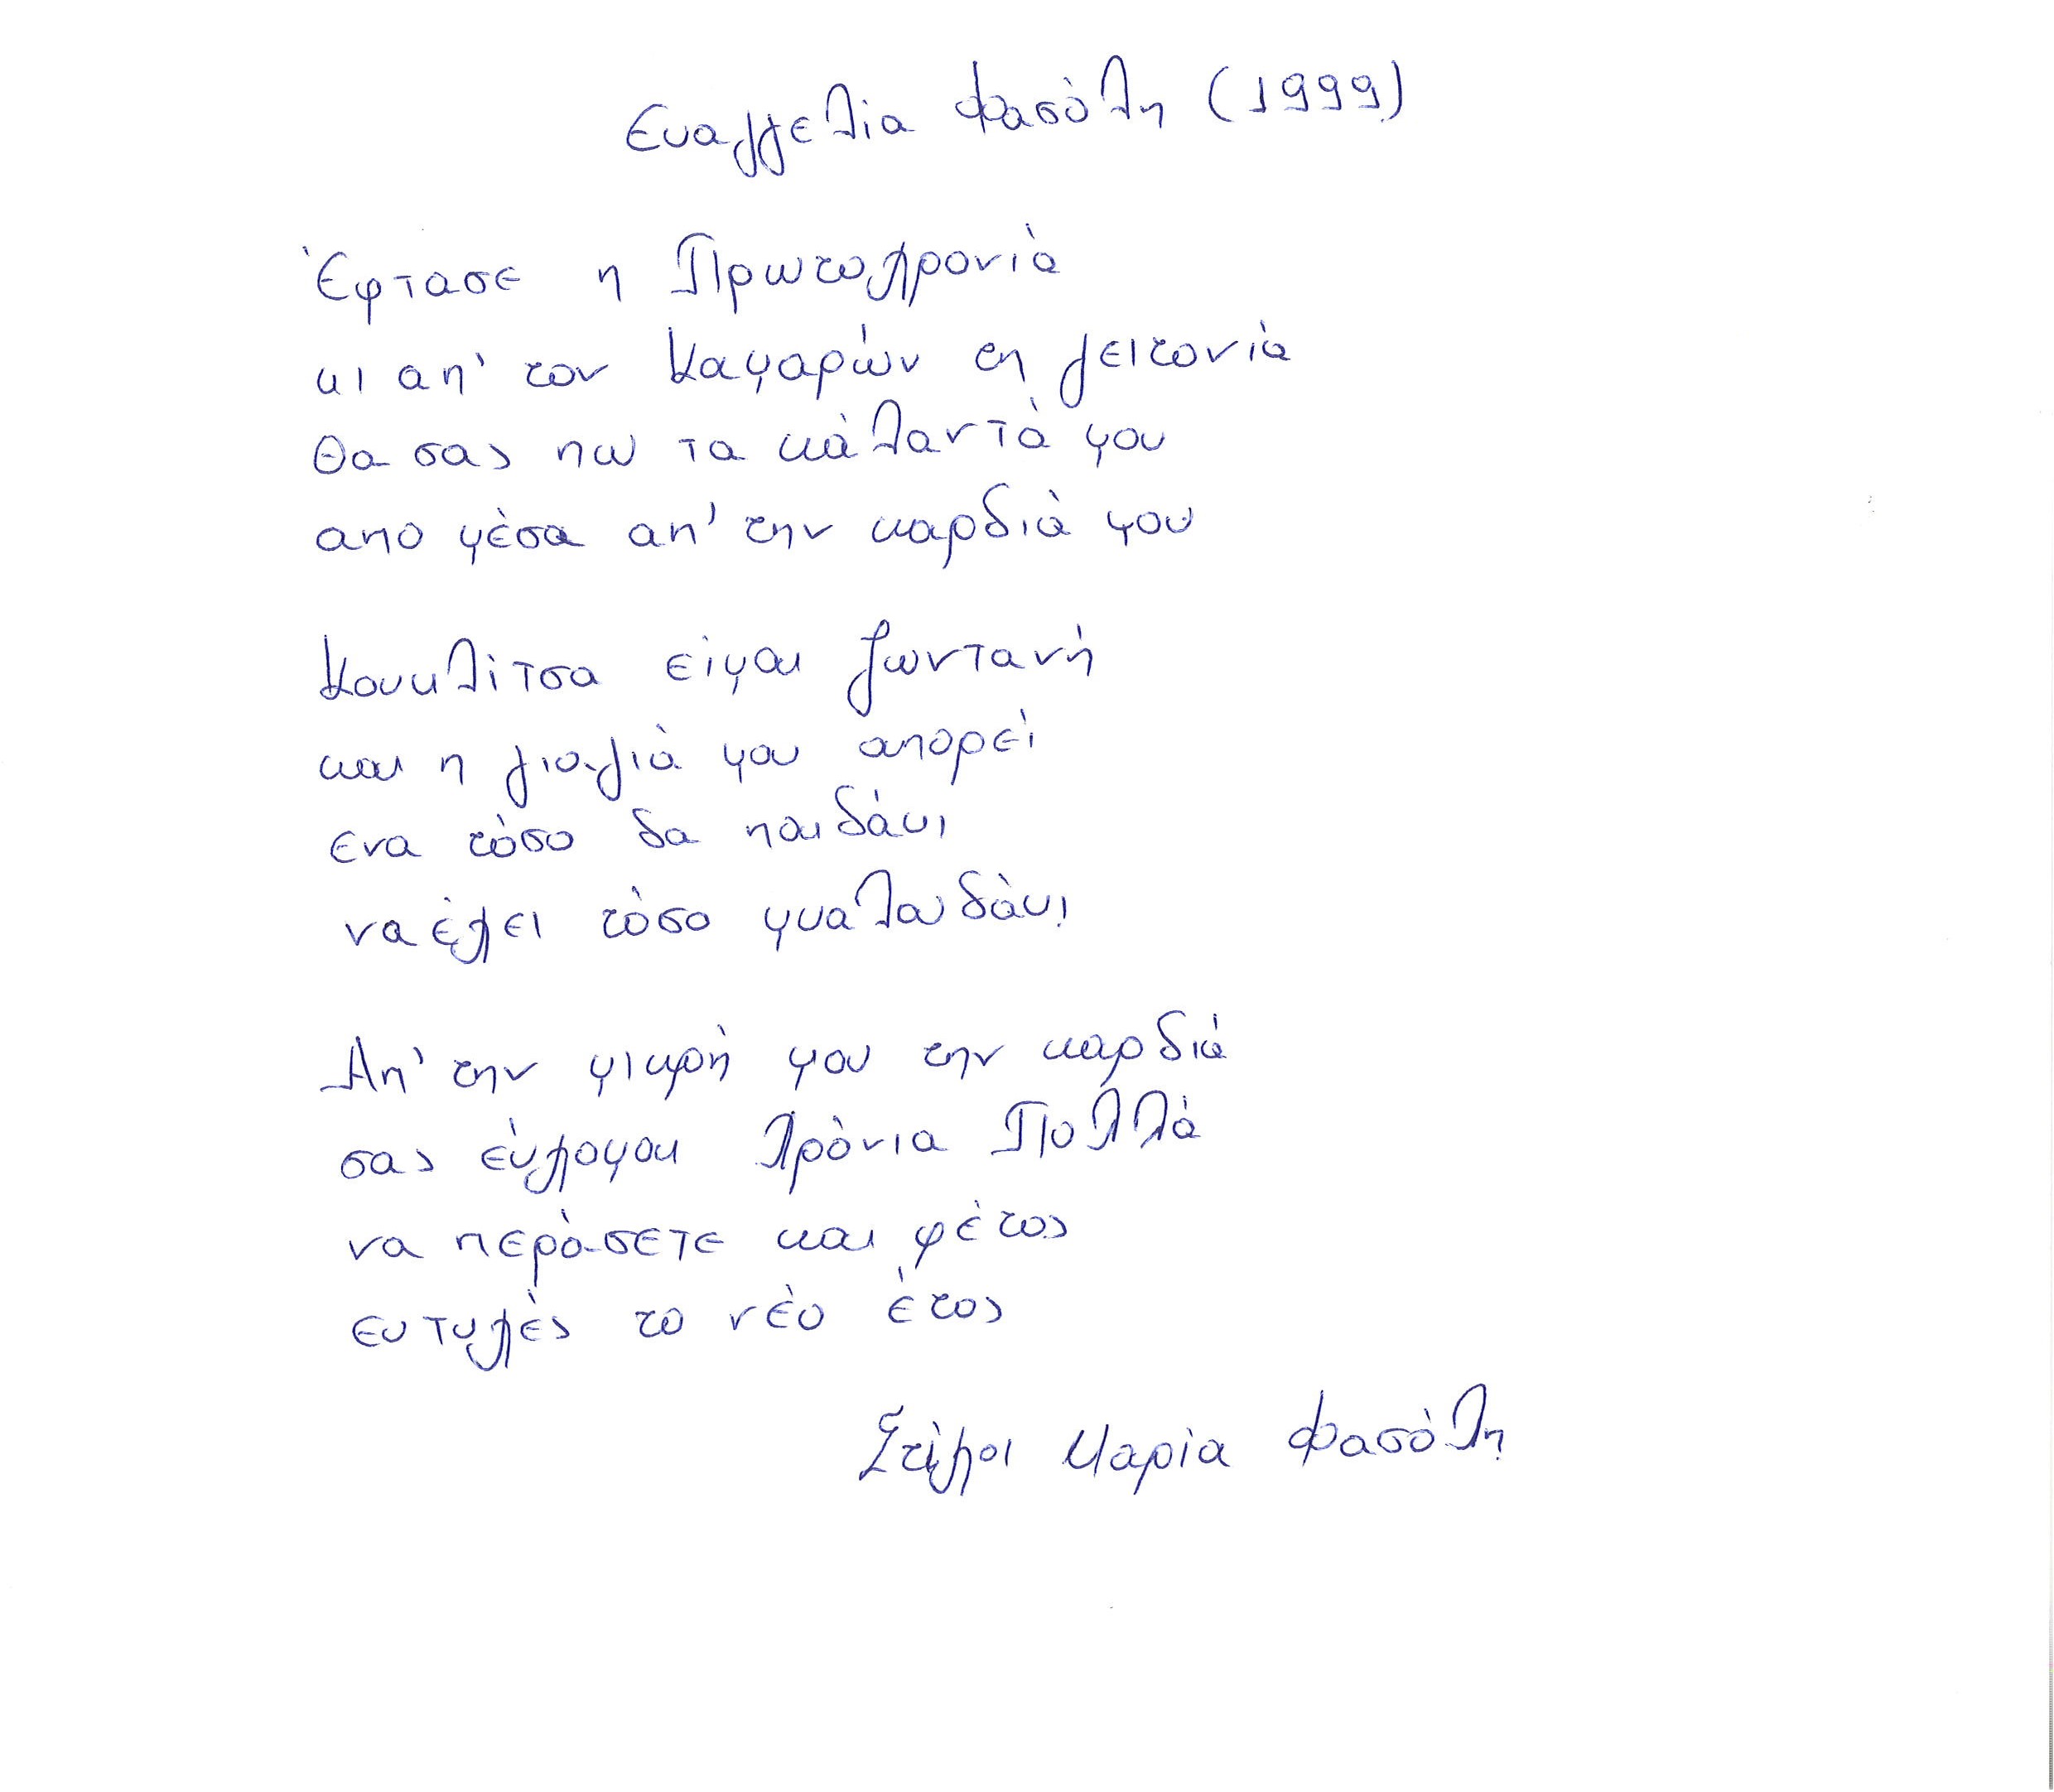 Ευαγγελία Φασόλη (1999)
Έφτασε η Πρωτοχρονιά
κι απ' τον Καμαρών τη γειτονιά
Θα σας πω τα κάλαντά μου
απο μέσα απ' την καρδιά μου
Κουκλίτσα είμαι ζωντανή
και η γιαγιά μου απορεί
ενα τόσο δα παιδάκι
να έχει τόσο μυαλουδάκι
Απ' την μικρή μου την καρδιά
σας εύχομαι Χρόνια Πολλά
να περάσετε και φέτος
ευτυχές το νέο έτος
Στίχοι Μαρία Φασόλη